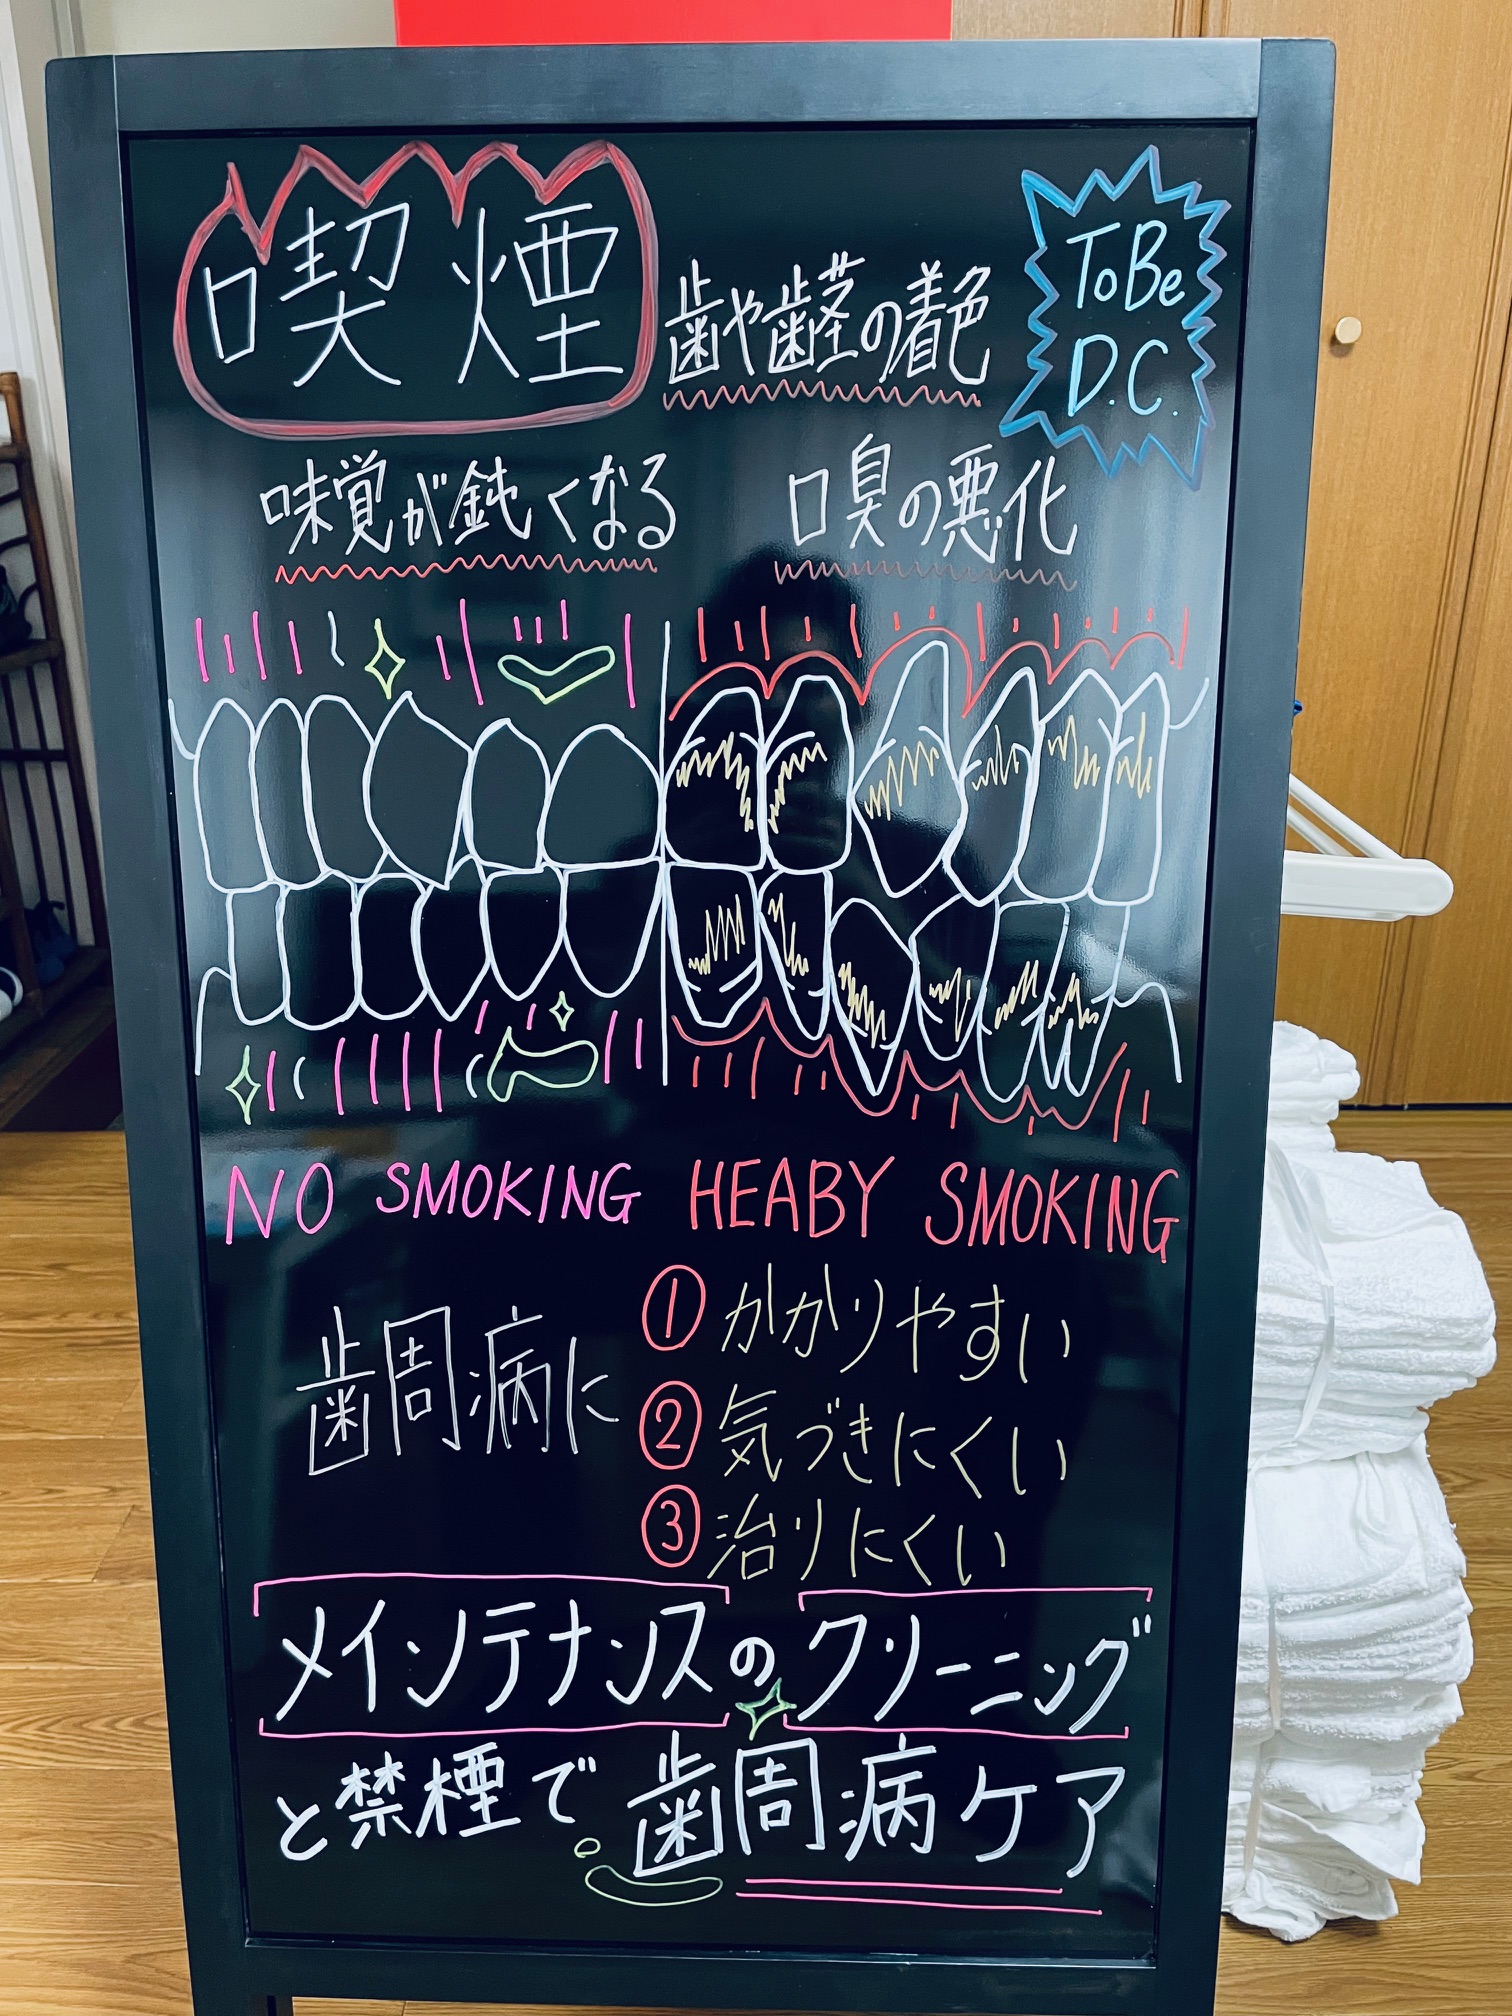 喫煙
歯や歯茎の着色
ToBe
D.C.
味覚が鈍くなる
口臭の悪化
NO SMOKING
HEABY SMOKING
歯周病に
① かかりやすい
② 気づきにくい
③ 治りにくい
メインテナンスのクリーニング
と禁煙で歯周病ケア